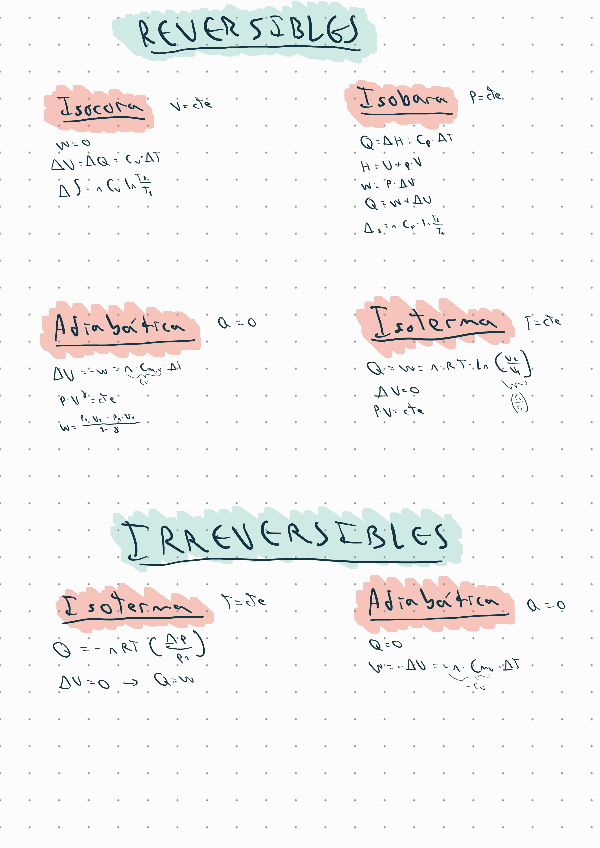 REVERSIBLES
Isocora V=cte
W=0
ΔV=ΔQ= Cv·ΔT
ΔS=n Cv ln T2/T1
Isobara P=cte.
Q=ΔH=Cp·ΔT
H=U+p·V
W=P·ΔV
Q=W+ΔU
Δs=n·Cp·ln T2/T1
Adiabática Q=0
ΔV=-W=n·Cmv·ΔT
Cv
P·V^γ=cte
Isoterma T=cte
Q=W=n·R·T·ln (V2/V1)
ΔV=0
P·V=cte
IRREVERSIBLES
Isoterma T=cte
Q=-nRT (Δp/P2)
ΔV=0 → Q=W
Adiabática Q=0
Q=0
W=-ΔV=-n·Cmv·ΔT
-Cv